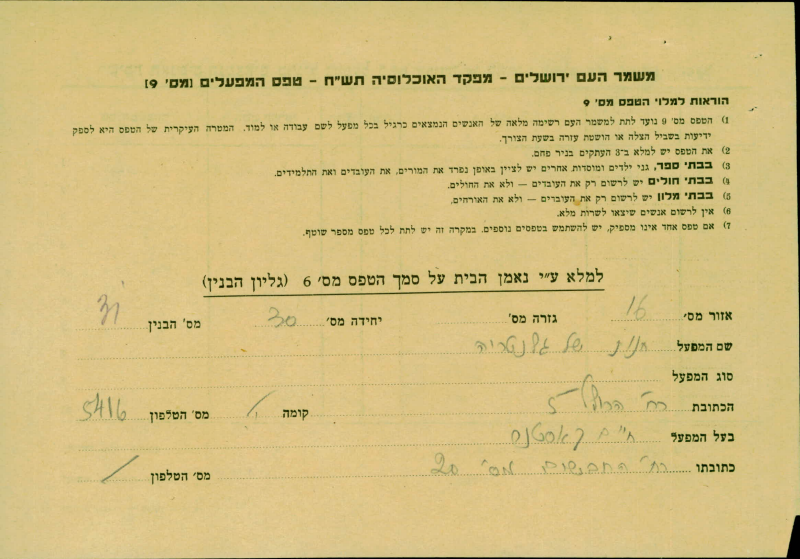 משמר העם ירושלים – מפקד האוכלוסיה תש"ח – טפס המפעלים [מס' 9]
הוראות למלוי הטפס מס' 9
1) הטפס מס' 9 נועד לתת למשמר העם רשימה מלאה של האנשים הנמצאים כרגיל בכל מפעל לשם עבודה או למוד. המטרה העיקרית של הטפס היא לספק
ידיעות בשביל הצלה או הושטת עזרה בשעת הצורך.
2) את הטפס יש למלא ב־3 העתקים בניר פחם.
3) בבתי ספר, גני ילדים ומוסדות אחרים יש לציין באופן נפרד את המורים, את העובדים ואת התלמידים.
4) בבתי חולים יש לרשום רק את העובדים — ולא את החולים.
5) בבתי מלון יש לרשום רק את העובדים — ולא את האורחים.
6) אין לרשום אנשים שיצאו לשרות מלא.
7) אם טפס אחד אינו מספיק, יש להשתמש בטפסים נוספים. במקרה זה יש לתת לכל טפס מספר שוטף.
למלא ע"י נאמן הבית על סמך הטפס מס' 6 (גליון הבנין)
אזור מס' 16 גזרה מס' יחידה מס' 30 מס' הבנין 31
שם המפעל חנות של גלנטריה
סוג המפעל
הכתובת רח' 5 קומה מס' הטלפון 5416
בעל המפעל חיים קאסטנר
כתובתו רח' החבשים מס' 20 מס' הטלפון /